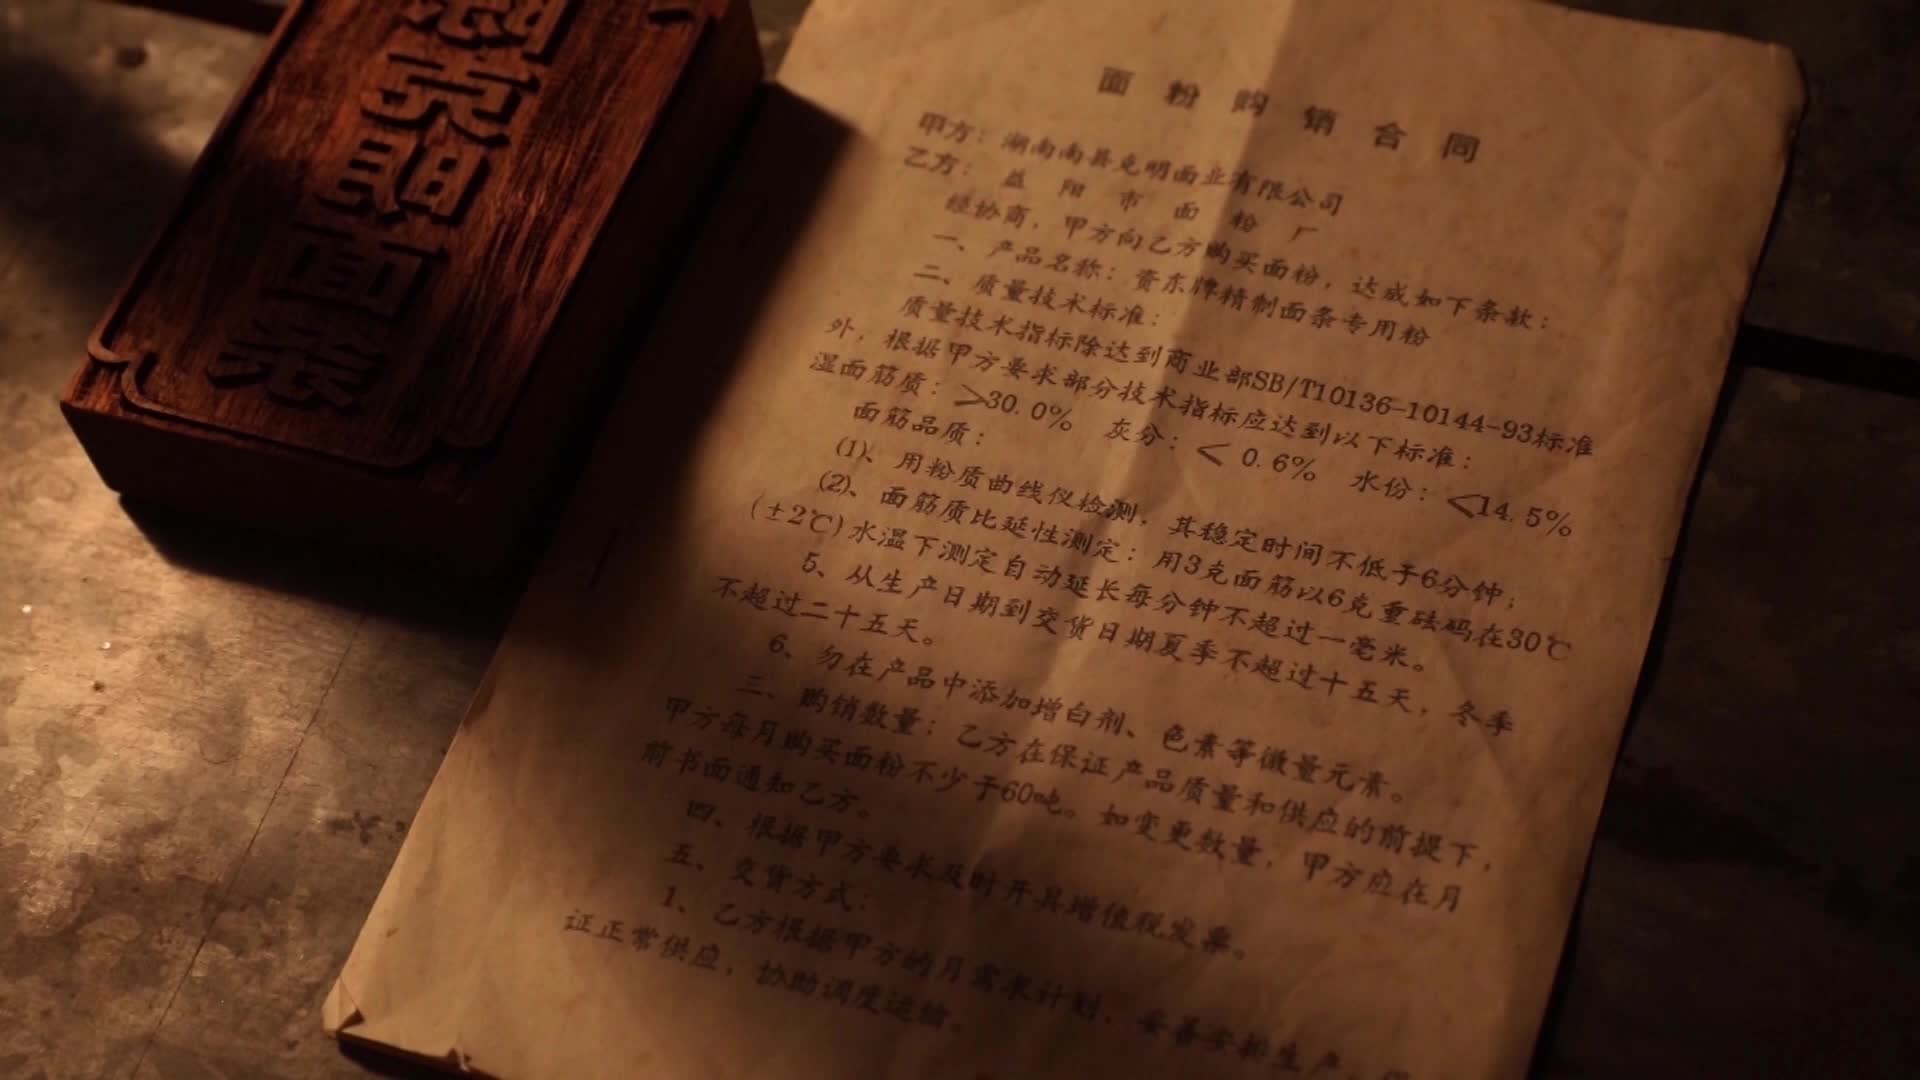 克明面条
面粉购销合同
甲方：湖南南县克明面业有限公司
乙方：益阳市面粉厂
经协商，甲方向乙方购买面粉，达成如下条款：
一、产品名称：资东牌精制面条专用粉
二、质量技术标准：
质量技术指标除达到商业部SB/T10136-10144-93标准
外，根据甲方要求部分技术指标应达到以下标准：
湿面筋质：≥30.0% 灰分：< 0.6% 水份：<14.5%
面筋品质：
(1)、用粉质曲线仪检测，其稳定时间不低于6分钟；
(2)、面筋质比延性测定：用3克面筋以6克重砝码在30℃
(±2℃)水温下测定自动延长每分钟不超过一毫米。
5、从生产日期到交货日期夏季不超过十五天，冬季
不超过二十五天。
6、勿在产品中添加增白剂、色素等微量元素。
三、购销数量：乙方在保证产品质量和供应的前提下，
甲方每月购买面粉不少于60吨。如变更数量，甲方应在月
前书面通知乙方。
四、根据甲方要求及时开具增值税发票。
五、交货方式：
1、乙方根据甲方的月需求计划，妥善安排生产，保
证正常供应，协助调度运输。